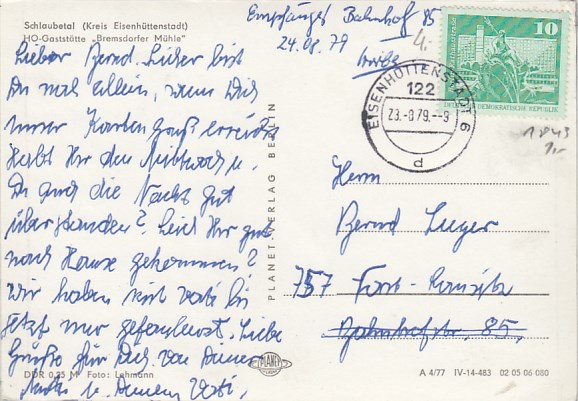 Schlaubetal (Kreis Eisenhüttenstadt)
HO-Gaststätte „Bremsdorfer Mühle"
Lieber Bernd. Sicher bist
Du mal allein, wenn Dich
unser Kartengruß erreicht
Habt Ihr den Mittwoch u.
Du auch die Nacht gut
überstanden? Seid Ihr gut
nach Hause gekommen?
Wir haben mit Vati bis
jetzt nur gefaulenzt. Liebe
Grüße für Dich von Deiner
Mutti u. Deinem Vati.
DDR 0,25 M Foto: Lehmann
PLANET-VERLAG BERLIN
PLANET
Empfänger Bahnhof 85
24.08.79
4.
10
DEUTSCHE DEMOKRATISCHE REPUBLIK
EISENHÜTTENSTADT 6
122
23.-8.79.--9
d
Herrn
Bernd
757 Forst-
Bahnhofstr. 85,
A 4/77 IV-14-483 02 05 06 080